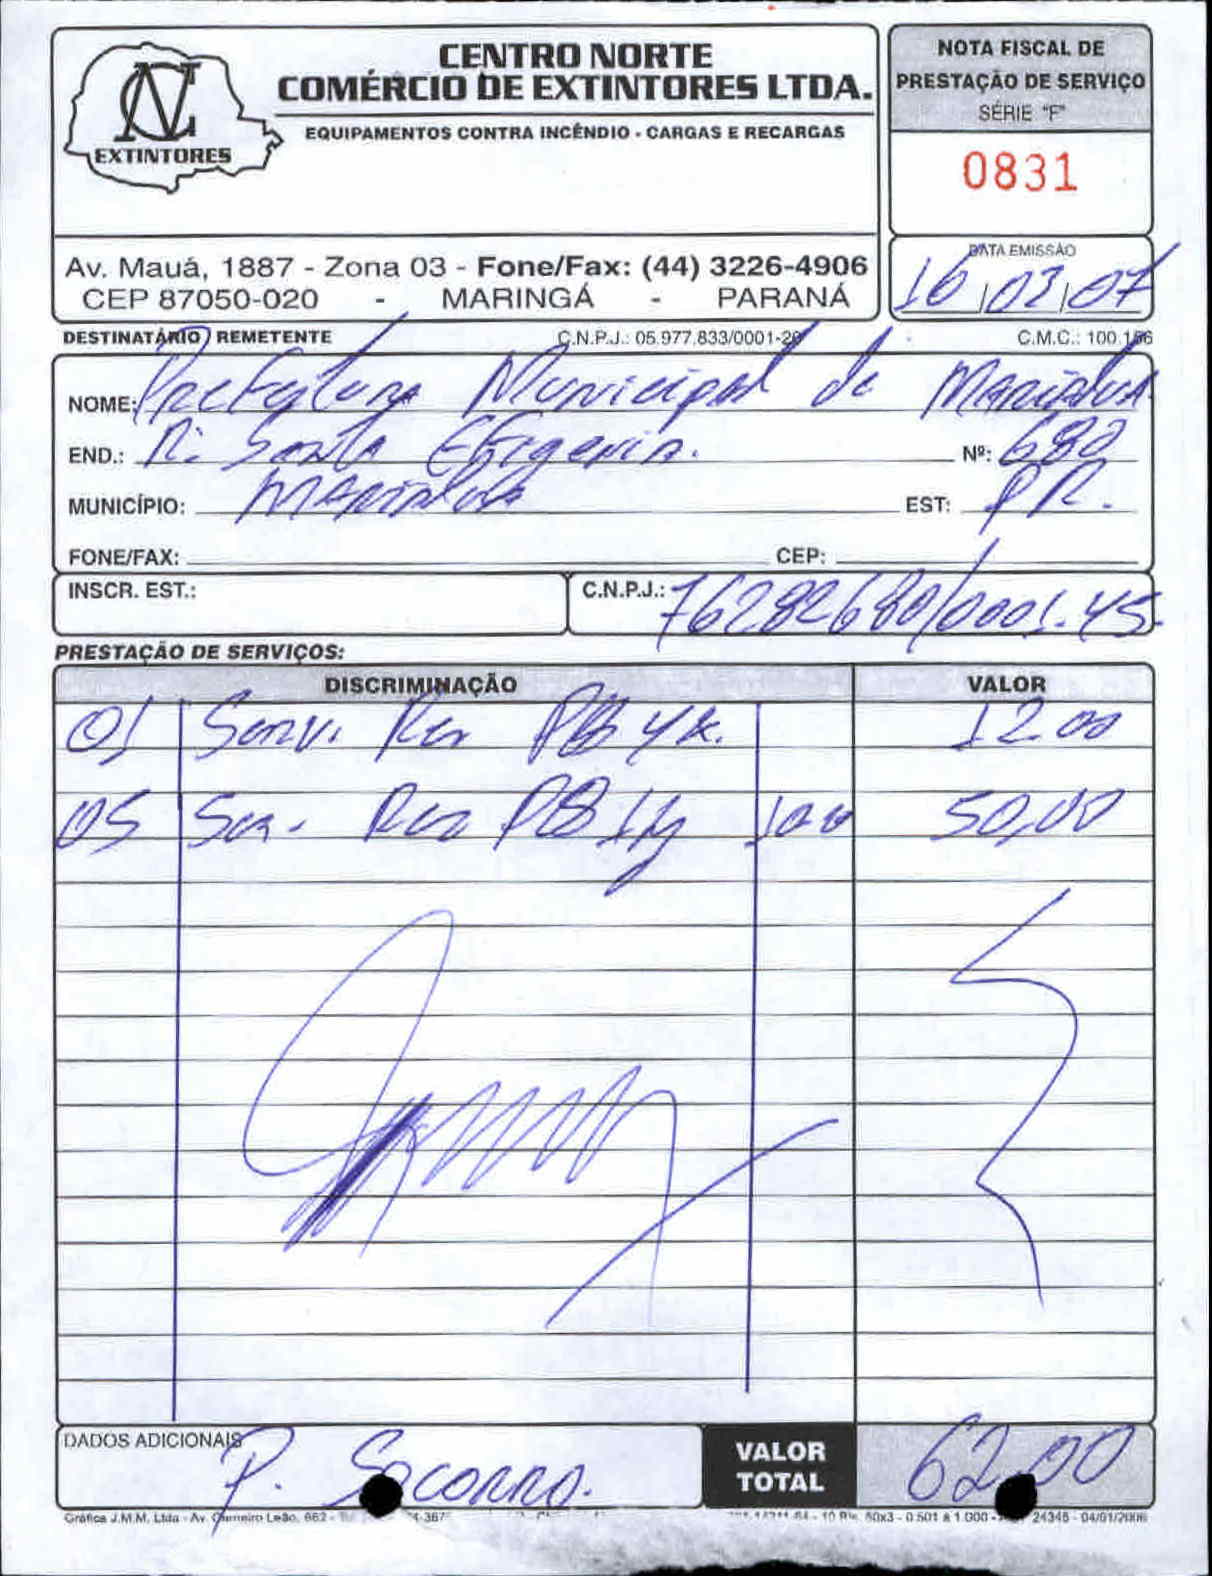 CENTRO NORTE
COMÉRCIO DE EXTINTORES LTDA.
EQUIPAMENTOS CONTRA INCÊNDIO - CARGAS E RECARGAS
NC
EXTINTORES
NOTA FISCAL DE
PRESTAÇÃO DE SERVIÇO
SÉRIE "F"
0831
Av. Mauá, 1887 - Zona 03 - Fone/Fax: (44) 3226-4906
CEP 87050-020 - MARINGÁ - PARANÁ
DATA EMISSÃO
16 03 07
DESTINATÁRIO / REMETENTE C.N.P.J.: 05.977.833/0001-20 C.M.C.: 100.156
NOME: Prefeitura Municipal de Marialva
END.: R: Santa Efigenia. Nº: 680
MUNICÍPIO: Marialva EST: PR.
FONE/FAX: CEP:
INSCR. EST.: C.N.P.J.: 76282680/0001-45
PRESTAÇÃO DE SERVIÇOS:
DISCRIMINAÇÃO VALOR
01 Serv. Rec 4k. 12.00
05 Ser. Rec 10,00 50,00
DADOS ADICIONAIS
P. Socorro.
VALOR TOTAL 62,00
Gráfica J.M.M. Ltda - Av. Carneiro Leão, 662 50x3 - 0.501 a 1.000 24345 - 04/01/2006